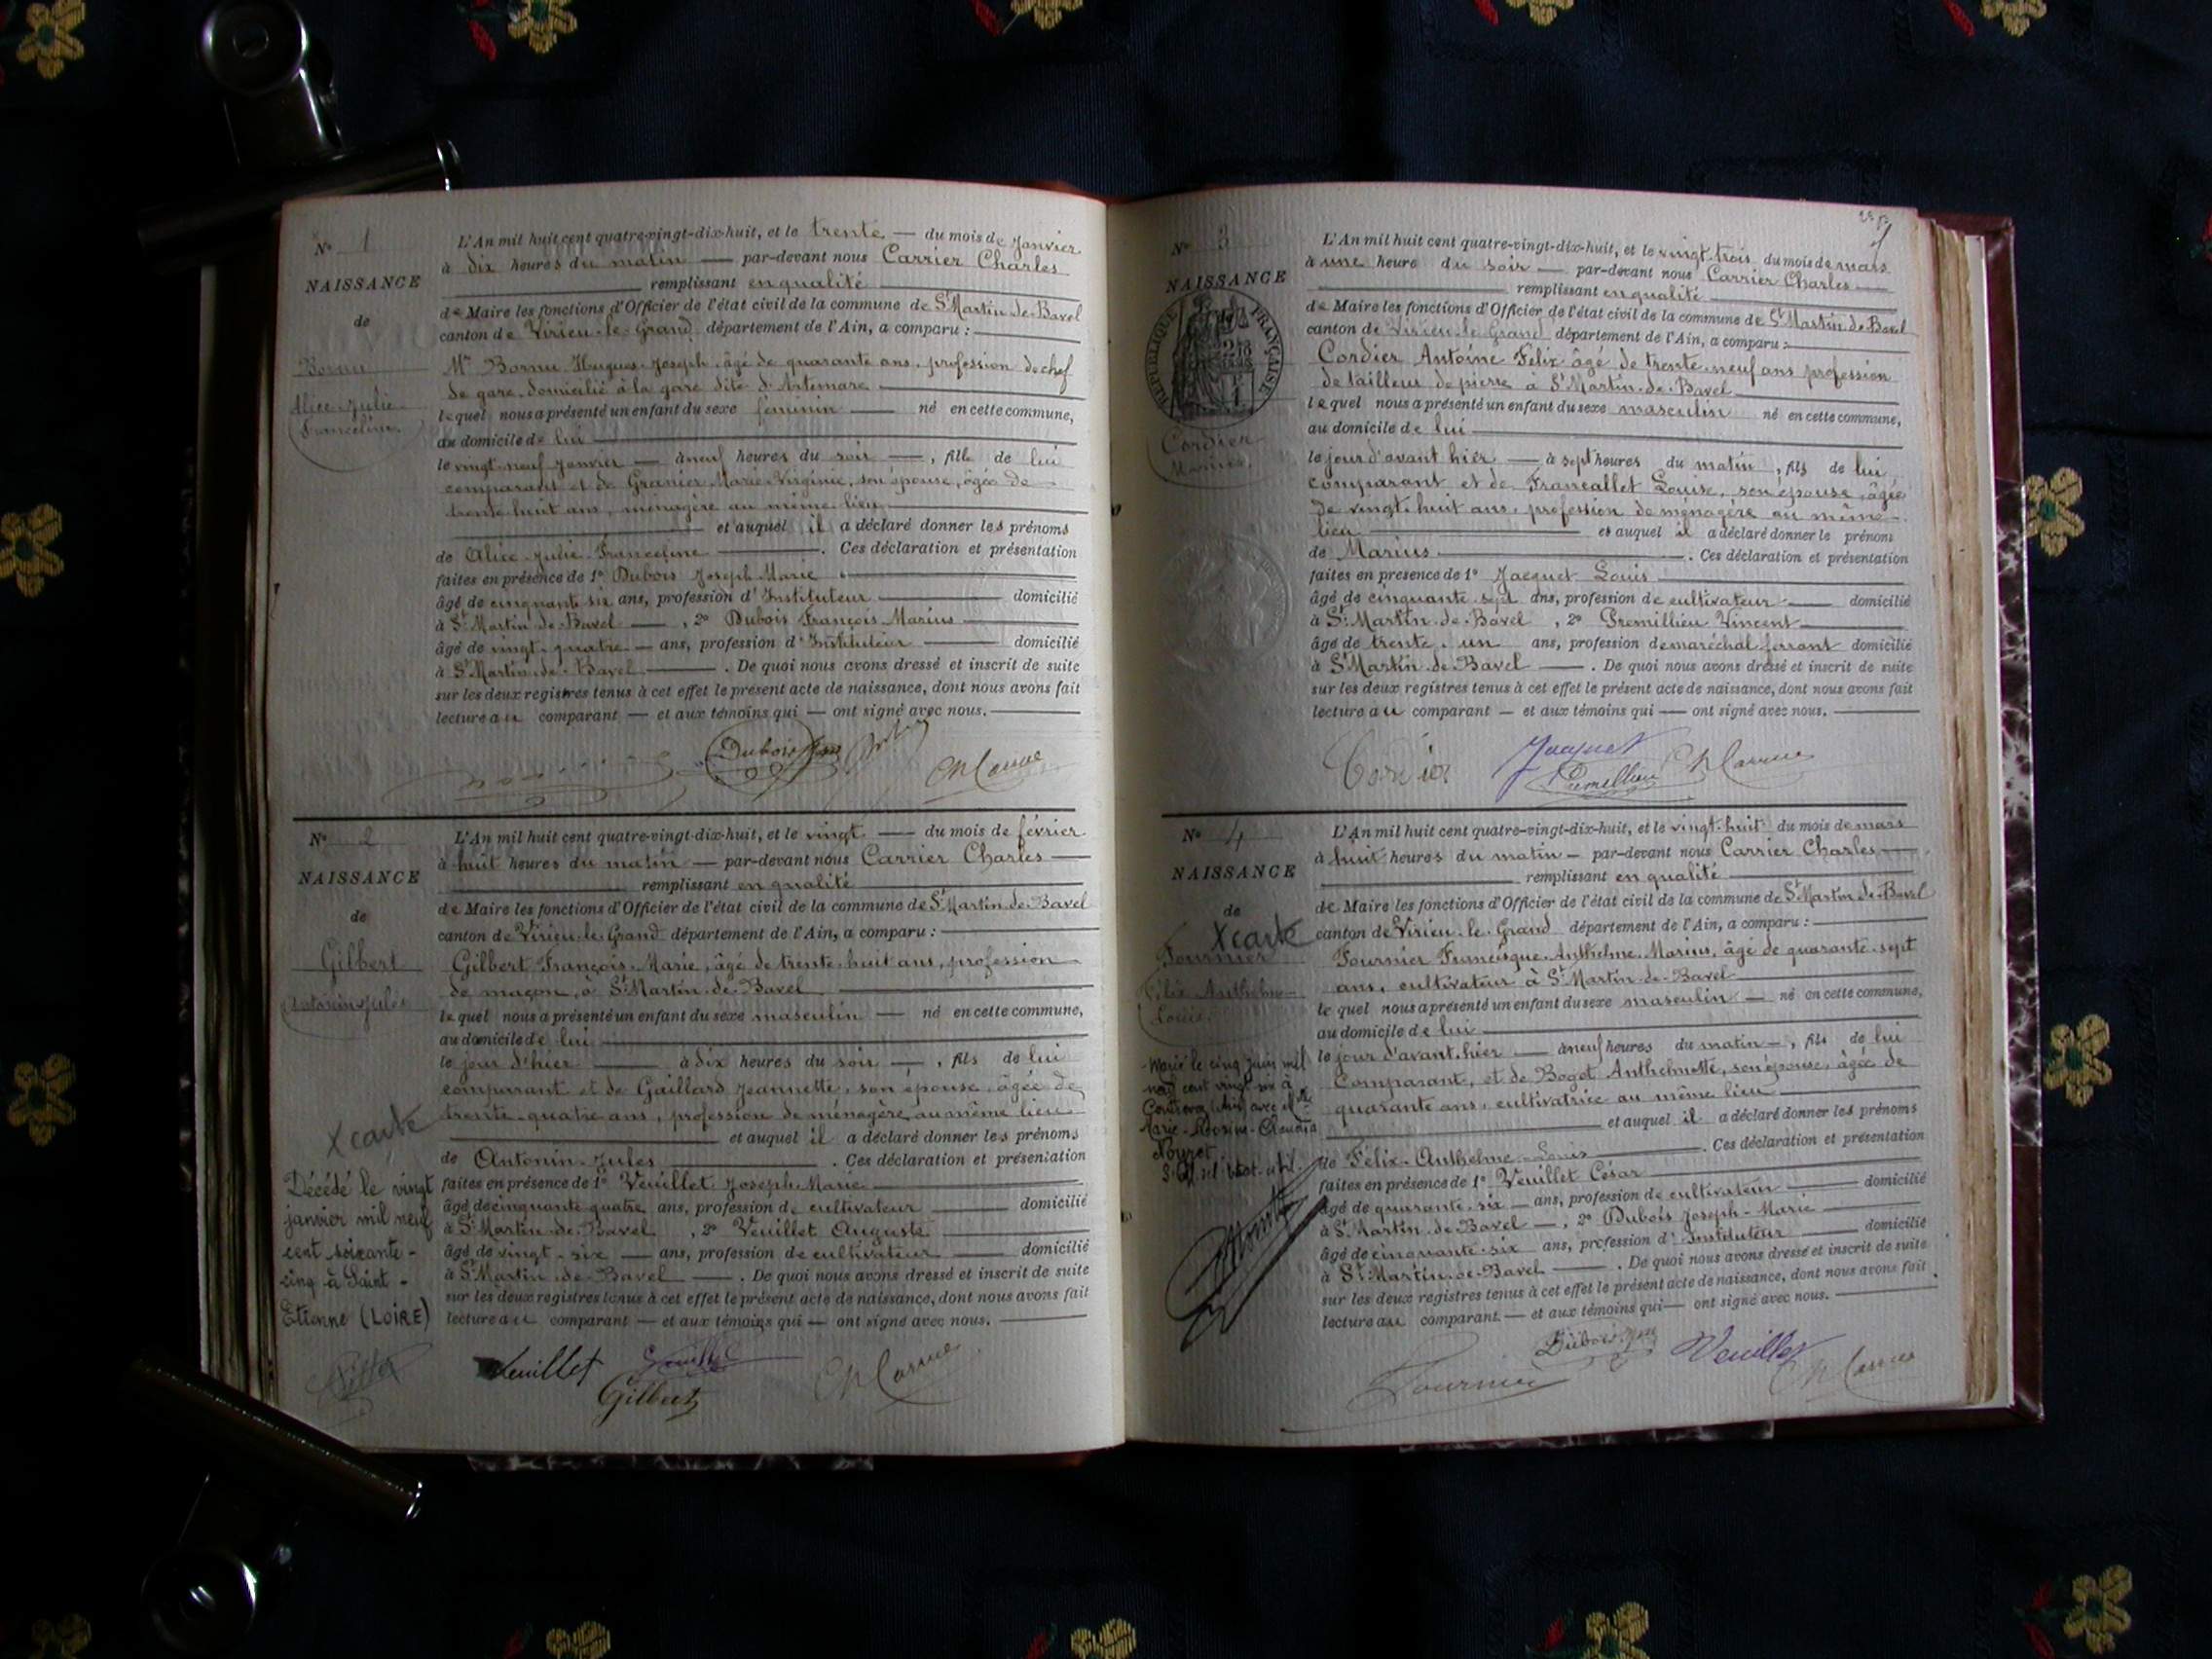 N° 1
NAISSANCE
de
Bornu
Alice-Julie
Franceline
L'An mil huit cent quatre-vingt-dix-huit, et le trente — du mois de Janvier
à dix heures du matin — par-devant nous Carrier Charles
remplissant en qualité
de Maire les fonctions d'Officier de l'état civil de la commune de St Martin-de-Bavel
canton de Virieu-le-Grand département de l'Ain, a comparu :
Mr Bornu Hugues-Joseph, âgé de quarante ans, profession de chef
de gare domicilié à la gare dite d'Artemare
lequel nous a présenté un enfant du sexe féminin — né en cette commune,
au domicile de lui
le vingt-neuf Janvier — à neuf heures du soir —, fille de lui
comparant et de Granier Marie-Virginie, son épouse, âgée de
trente-huit ans, ménagère au même lieu
et auquel il a déclaré donner les prénoms
de Alice-Julie-Franceline. Ces déclaration et présentation
faites en présence de 1° Dubois Joseph-Marie
âgé de cinquante-six ans, profession d'Instituteur — domicilié
à St Martin-de-Bavel —, 2° Dubois François-Marius
âgé de vingt-quatre — ans, profession d'Instituteur — domicilié
à St Martin-de-Bavel —. De quoi nous avons dressé et inscrit de suite
sur les deux registres tenus à cet effet le présent acte de naissance, dont nous avons fait
lecture au comparant — et aux témoins qui — ont signé avec nous.
Dubois Ch Carrier
N° 2
NAISSANCE
de
Gilbert
Antonin-Jules
X carte
Décédé le vingt
janvier mil neuf
cent soixante-
cinq à Saint-
Etienne (LOIRE)
L'An mil huit cent quatre-vingt-dix-huit, et le vingt — du mois de février
à huit heures du matin — par-devant nous Carrier Charles —
remplissant en qualité
de Maire les fonctions d'Officier de l'état civil de la commune de St Martin-de-Bavel
canton de Virieu-le-Grand département de l'Ain, a comparu :
Gilbert François-Marie, âgé de trente-huit ans, profession
de maçon, à St Martin-de-Bavel
lequel nous a présenté un enfant du sexe masculin — né en cette commune,
au domicile de lui
le jour d'hier — à dix heures du soir —, fils de lui
comparant et de Gaillard Jeannette, son épouse, âgée de
trente-quatre ans, profession de ménagère au même lieu
et auquel il a déclaré donner les prénoms
de Antonin-Jules. Ces déclaration et présentation
faites en présence de 1° Veuillet Joseph-Marie
âgé de cinquante-quatre ans, profession de cultivateur — domicilié
à St Martin-de-Bavel, 2° Veuillet Auguste
âgé de vingt-six — ans, profession de cultivateur — domicilié
à St Martin-de-Bavel —. De quoi nous avons dressé et inscrit de suite
sur les deux registres tenus à cet effet le présent acte de naissance, dont nous avons fait
lecture au comparant — et aux témoins qui — ont signé avec nous.
Veuillet Veuillet Ch Carrier
Gilbert
N° 3
NAISSANCE
de
RÉPUBLIQUE FRANÇAISE
Cordier
Marius
L'An mil huit cent quatre-vingt-dix-huit, et le vingt-trois du mois de mars
à une heure du soir — par-devant nous Carrier Charles —
remplissant en qualité
de Maire les fonctions d'Officier de l'état civil de la commune de St Martin-de-Bavel
canton de Virieu-le-Grand département de l'Ain, a comparu :
Cordier Antoine Félix âgé de trente-neuf ans profession
de tailleur de pierre à St Martin-de-Bavel
lequel nous a présenté un enfant du sexe masculin né en cette commune,
au domicile de lui
le jour d'avant hier — à sept heures du matin, fils de lui
comparant et de Francallet Louise, son épouse, âgée
de vingt-huit ans, profession de ménagère au même
lieu — et auquel il a déclaré donner le prénom
de Marius. Ces déclaration et présentation
faites en présence de 1° Jacquet Louis
âgé de cinquante-sept ans, profession de cultivateur — domicilié
à St Martin-de-Bavel, 2° Premillieu Vincent
âgé de trente-un ans, profession de maréchal-ferrant domicilié
à St Martin-de-Bavel —. De quoi nous avons dressé et inscrit de suite
sur les deux registres tenus à cet effet le présent acte de naissance, dont nous avons fait
lecture au comparant — et aux témoins qui — ont signé avec nous.
Cordier Jacquet Ch Carrier
Premillieu
N° 4
NAISSANCE
de
X carte
Fournier
Félix-Anthelme-
Louis
Marié le cinq juin mil
neuf cent vingt-six à
avec Mlle
Marie-
S. Off. del. Etat-civil.
L'An mil huit cent quatre-vingt-dix-huit, et le vingt-huit du mois de mars
à huit heures du matin — par-devant nous Carrier Charles —
remplissant en qualité
de Maire les fonctions d'Officier de l'état civil de la commune de St Martin-de-Bavel
canton de Virieu-le-Grand département de l'Ain, a comparu :
Fournier Francisque-Anthelme-Marius, âgé de quarante-sept
ans, cultivateur à St Martin-de-Bavel
lequel nous a présenté un enfant du sexe masculin — né en cette commune,
au domicile de lui
le jour d'avant-hier — à neuf heures du matin —, fils de lui
comparant, et de Bogot Anthelmette, son épouse, âgée de
quarante ans, cultivatrice au même lieu
et auquel il a déclaré donner les prénoms
de Félix-Anthelme-Louis. Ces déclaration et présentation
faites en présence de 1° Veuillet César
âgé de quarante-six — ans, profession de cultivateur — domicilié
à St Martin-de-Bavel —, 2° Dubois Joseph-Marie
âgé de cinquante-six ans, profession d'Instituteur — domicilié
à St Martin-de-Bavel —. De quoi nous avons dressé et inscrit de suite
sur les deux registres tenus à cet effet le présent acte de naissance, dont nous avons fait
lecture au comparant — et aux témoins qui — ont signé avec nous.
Dubois Veuillet
Fournier Ch Carrier